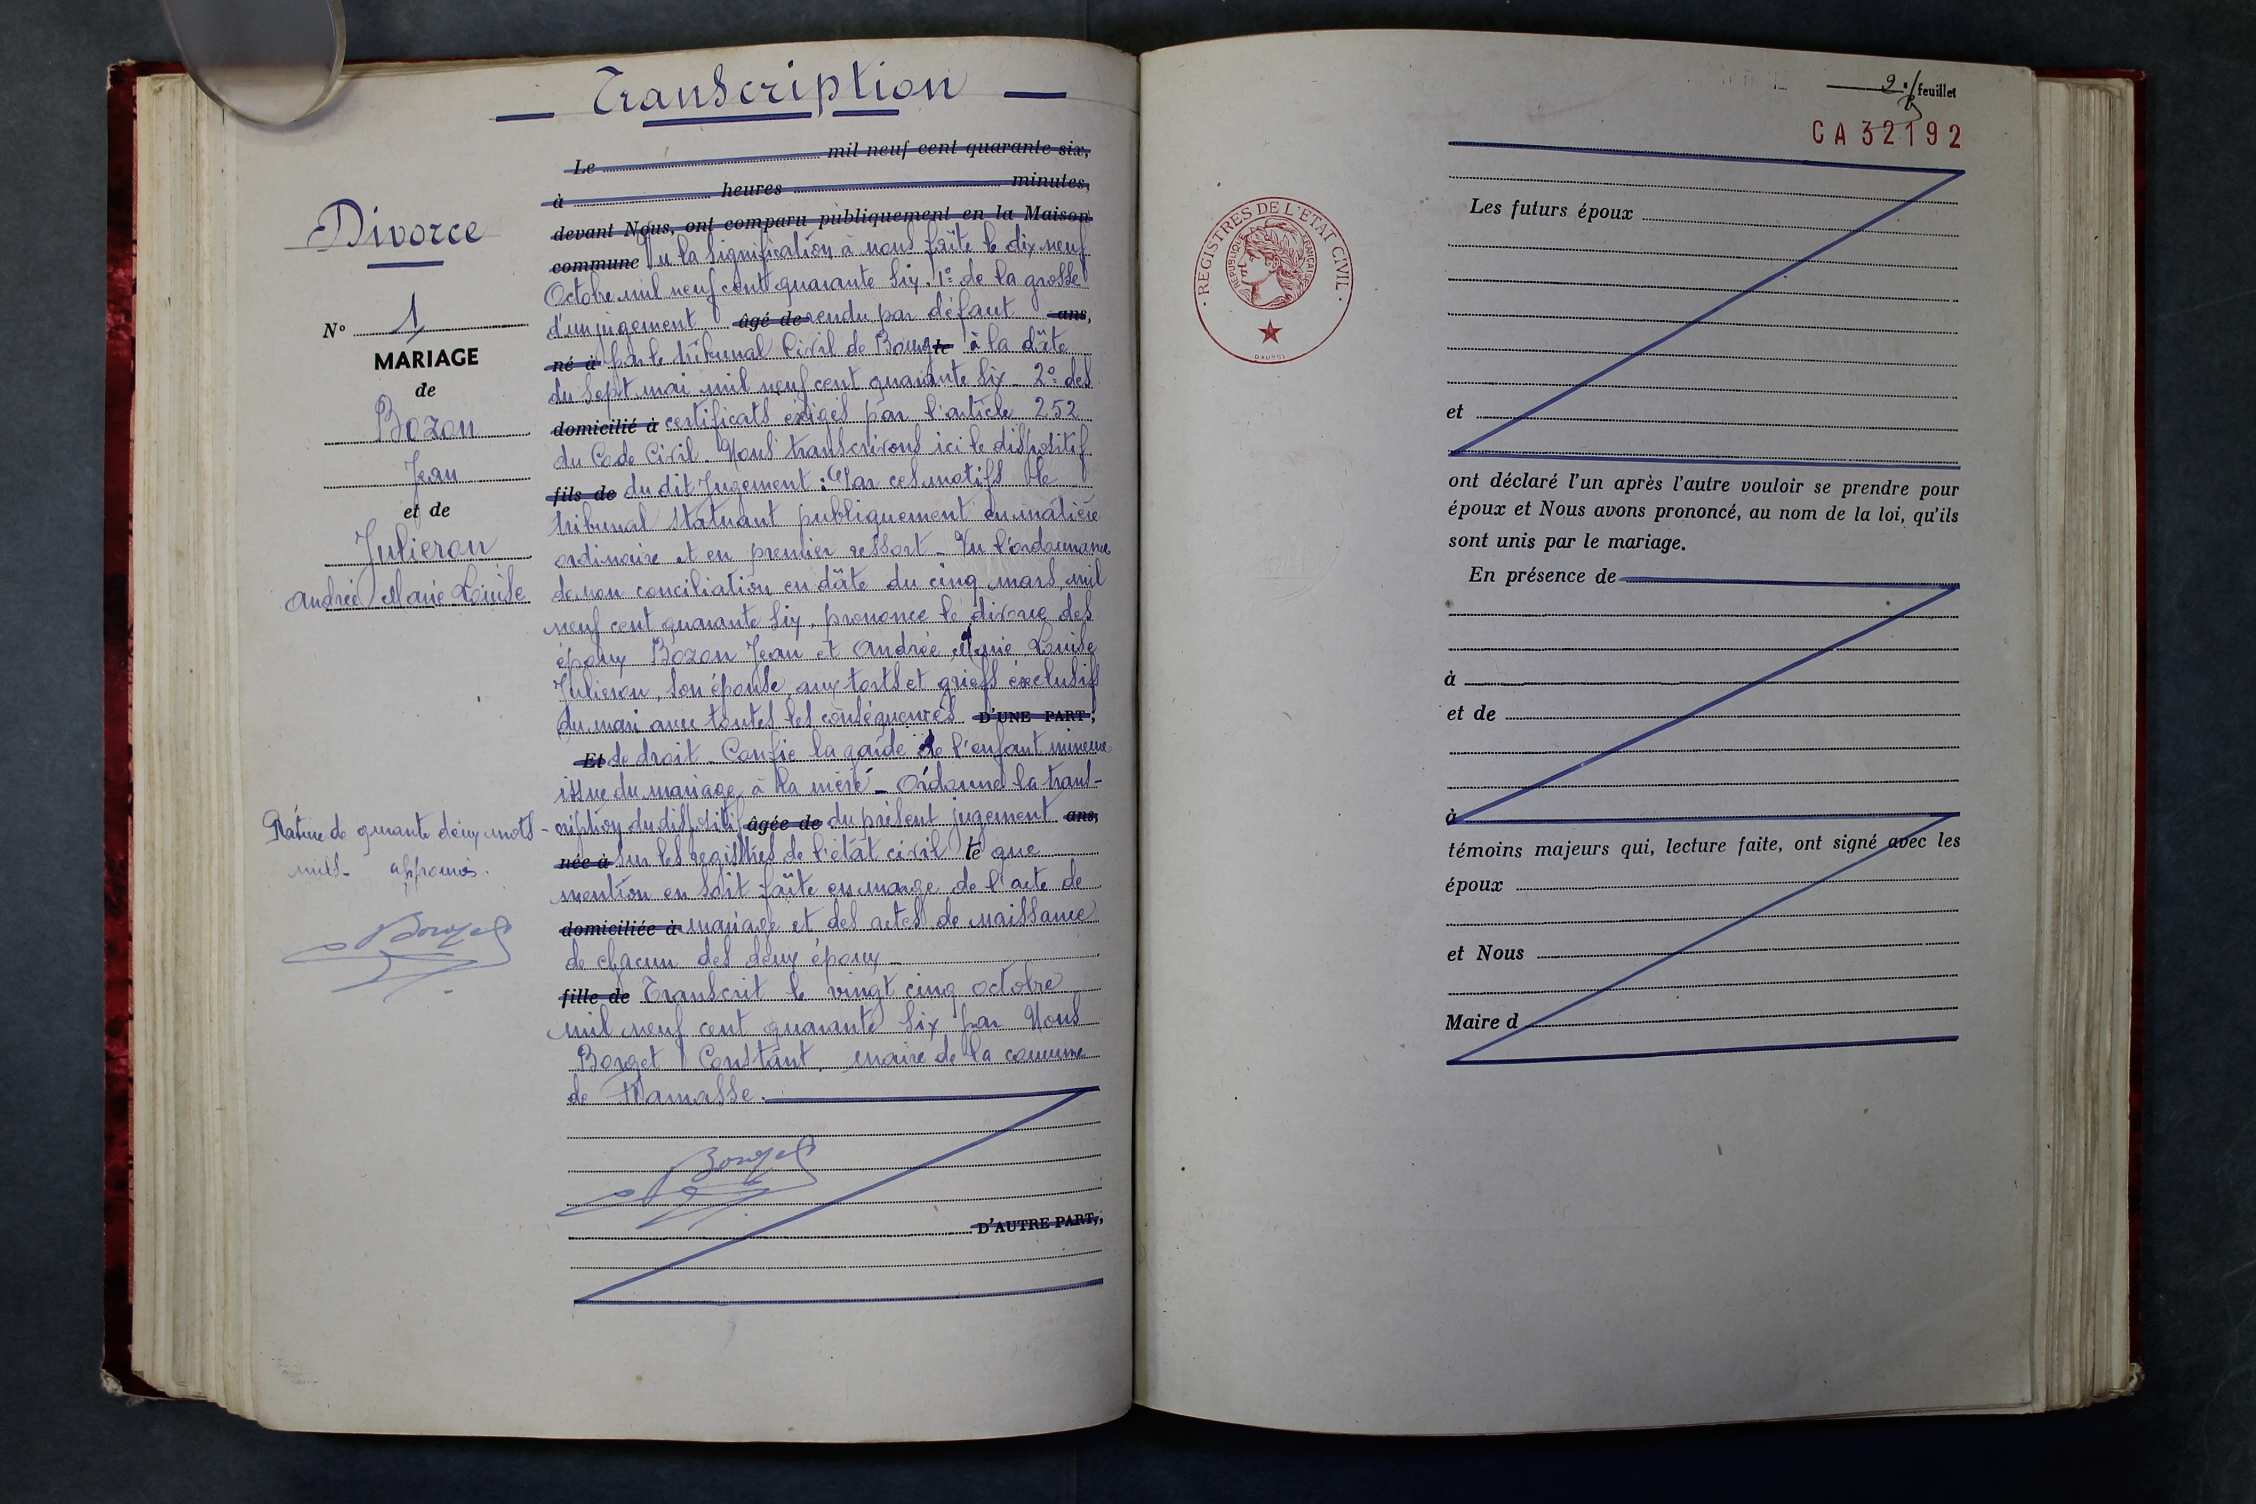 Transcription
Le mil neuf cent quarante six,
à heures minutes,
devant Nous, ont comparu publiquement en la Maison
commune Vu la signification à nous faîte le dix neuf
Octobre mil neuf cent quarante six. 1º de la grosse
d'un jugement âgé de rendu par défaut ans,
né à par le tribunal Civil de Bourg à la dâte
du sept mai mil neuf cent quarante six 2º des
domicilié à certificats exigés par l'article 252
du Code Civil. Nous transcrivons ici le dispositif
fils de du dit Jugement : "Par ces motifs le
tribunal statuant publiquement en matière
ordinaire et en premier ressort - Vu l'ordonnance
de non conciliation en dâte du cinq mars mil
neuf cent quarante six. prononce le divorce des
époux Bozon Jean et Andrée Marie Louise
Julieron, son épouse, aux torts et griefs éxclusifs
du mari avec toutes les conséquences D'UNE PART ;
Et de droit - Confie la garde de l'enfant mineure
issue du mariage à la mère - Ordonne la trans-
cription du dispositif âgée de du présent jugement ans,
née à sur les registres de l'état civil et que
mention en soit faîte en marge de l'acte de
domiciliée à mariage et des actes de naissance
de chacun des deux époux -
fille de Transcrit le vingt cinq octobre
mil neuf cent quarante six par Nous
Borget Constant, maire de la commune
de Ramasse.
Borget
D'AUTRE PART,
Divorce
Nº 1
MARIAGE
de
Bozon
Jean
et de
Julieron
Andrée Marie Louise
Râture de quarante deux mots
nuls - approuvés.
Borget
2 feuillet
CA 32192
REGISTRES DE L'ETAT CIVIL
REPUBLIQUE FRANÇAISE
Les futurs époux
et
ont déclaré l'un après l'autre vouloir se prendre pour
époux et Nous avons prononcé, au nom de la loi, qu'ils
sont unis par le mariage.
En présence de
à
et de
à
témoins majeurs qui, lecture faite, ont signé avec les
époux
et Nous
Maire d